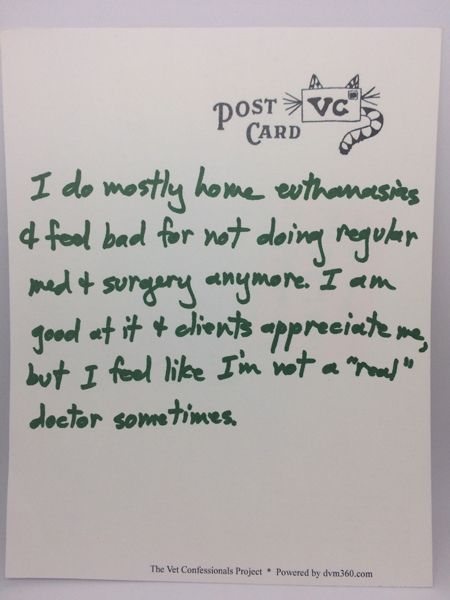 POST
CARD
VC
I do mostly home euthanasias
& feel bad for not doing regular
med & surgery anymore. I am
good at it & clients appreciate me,
but I feel like I'm not a "real"
doctor sometimes.
The Vet Confessionals Project * Powered by dvm360.com